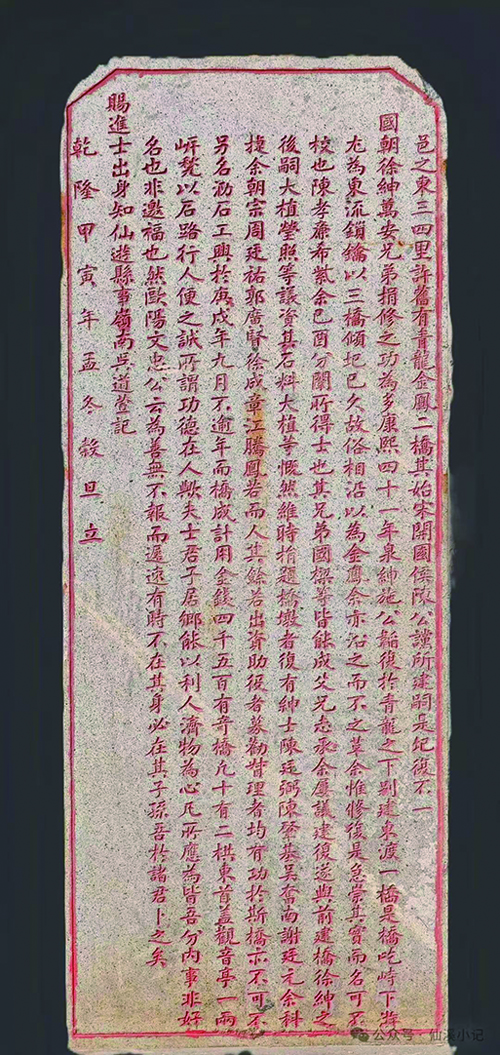 邑之東三四里許舊有青龍金鳳二橋其始宋開國侯陳公謹所建嗣是圮復不一
國朝徐紳萬安兄弟捐修之功為多康熙四十一年泉紳施公韜復於青龍之下別建東渡一橋是橋屹峙下游
尤為東流鎖鑰以三橋傾圮已久故俗相沿以為金鳳余亦沿之而不之革余惟修復是急崇其實而名可不
校也陳孝廉希紫余己酉分闈所得士也其兄弟國樑等皆能成父兄志承余屢議建復遂與前建橋徐紳之
後嗣大植瑩照等議資其石料大植等慨然維時捐題橋墩者復有紳士陳廷弼陳肇基吳奮南謝廷元余科
捷余朝宗周廷祐郭廣督徐成章江騰鳳若而人其餘若出資助役者募勸督理者均有功於斯橋亦不可不
另名泐石工興於庚戌年九月不逾年而橋成計用金錢四千五百有奇橋凡十有二栱東首蓋觀音亭一兩
岸甃以石路行人便之誠所謂功德在人歟夫士君子居鄉能以利人濟物為心凡所應為皆吾分內事非好
名也非邀福也然歐陽文忠公云為善無不報而遲速有時不在其身必在其子孫吾於諸君卜之矣
賜進士出身知仙遊縣事嶺南吳道萱記
乾隆甲寅年孟冬穀旦立
公众号·仙溪小记